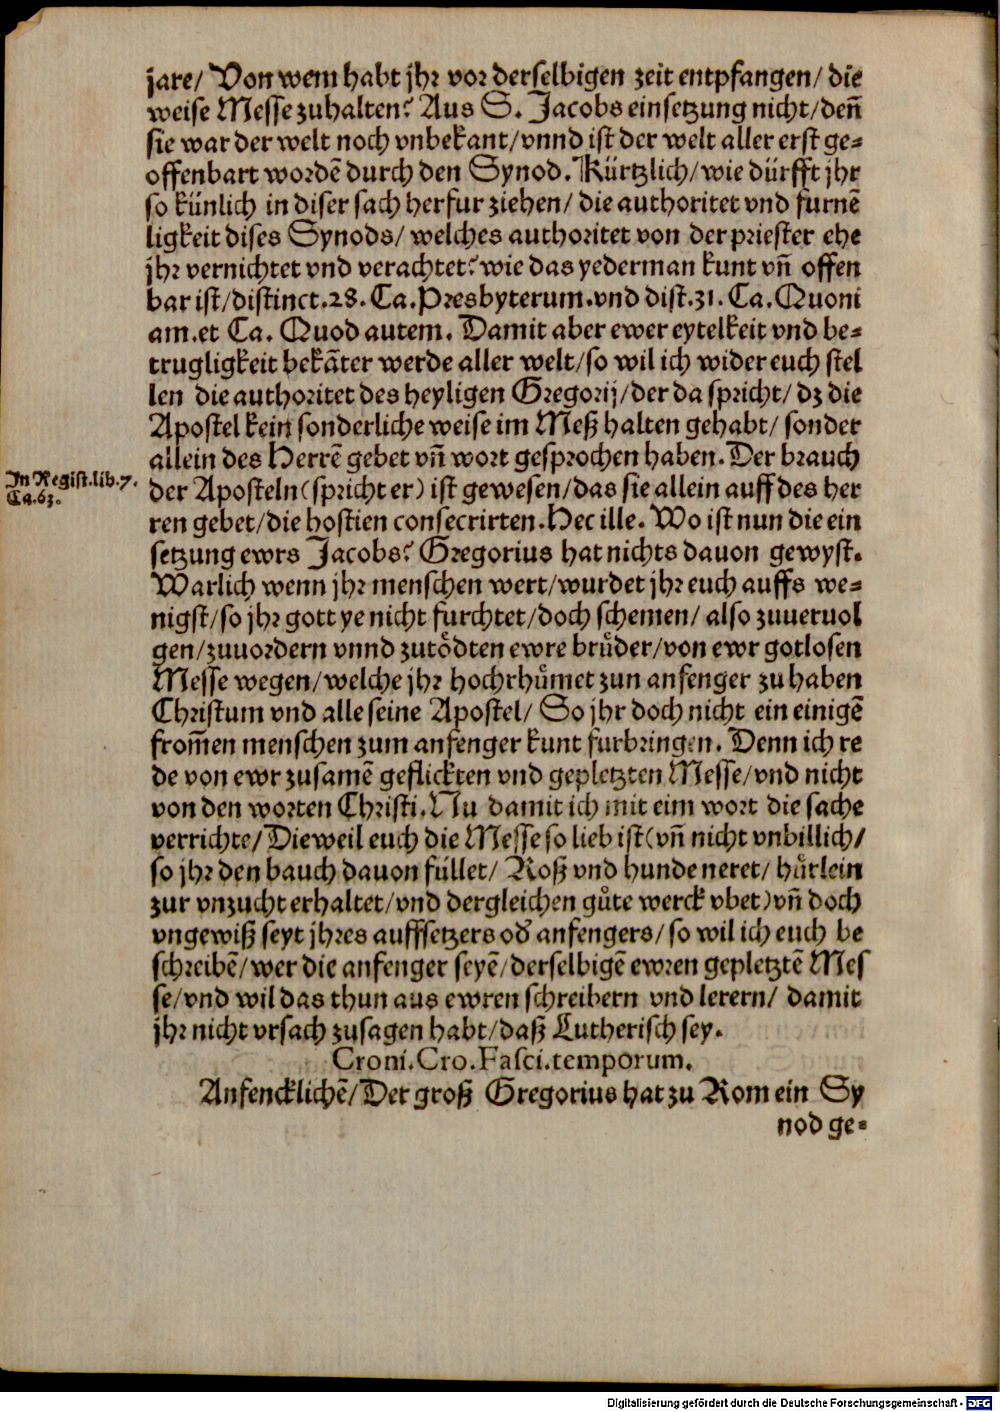 jare/ Von wem habt jhr vor derselbigen zeit entpfangen/ die
weise Messe zuhalten? Aus S. Jacobs einsetzung nicht/deñ
sie war der welt noch vnbekant/vnnd ist der welt aller erst ge=
offenbart wordē durch den Synod. Kürtzlich/wie dürfft jhr
so künlich in diser sach herfur ziehen/ die authoritet vnd furnē
ligkeit dises Synods/ welches authoritet von der priester ehe
jhr vernichtet vnd verachtet? wie das yederman kunt vñ offen
bar ist/distinct.28. Ca.Presbyterum.vnd dist.31. Ca. Quoni
am.et Ca. Quod autem. Damit aber ewer eytelkeit vnd be=
trugligkeit bekāter werde aller welt/so wil ich wider euch stel
len die authoritet des heyligen Gregorij/der da spricht/ dz die
Apostel kein sonderliche weise im Meß halten gehabt/ sonder
allein des Herrē gebet vñ wort gesprochen haben. Der brauch
In Regist.lib.7.
Ca.63.
der Aposteln(spricht er) ist gewesen/das sie allein auff des her
ren gebet/die hostien consecrirten.Hec ille. Wo ist nun die ein
setzung ewrs Jacobs? Gregorius hat nichts dauon gewyst.
Warlich wenn jhr menschen wert/wurdet jhr euch auffs we=
nigst/so jhr gott ye nicht furchtet/doch schemen/ also zuueruol
gen/zuuordern vnnd zutoͤdten ewre bruͤder/von ewr gotlosen
Messe wegen/welche jhr hochrhuͤmet zun anfenger zu haben
Christum vnd alle seine Apostel/ So jhr doch nicht ein einigē
from̄en menschen zum anfenger kunt furbringen. Denn ich re
de von ewr zusamē geflickten vnd gepletzten Messe/vnd nicht
von den worten Christi. Nu damit ich mit eim wort die sache
verrichte/Dieweil euch die Messe so lieb ist(vñ nicht vnbillich/
so jhr den bauch dauon füllet/ Roß vnd hunde neret/ huͤrlein
zur vnzucht erhaltet/vnd dergleichen guͤte werck vbet)vñ doch
vngewiß seyt jhres aufffsetzers od' anfengers/so wil ich euch be
schreibē/wer die anfenger seyē/derselbigē ewren gepletztē Mes
se/vnd wil das thun aus ewren schreibern vnd lerern/ damit
jhr nicht vrsach zusagen habt/daß Lutherisch sey.
Croni.Cro.Fasci.temporum.
Anfencklichē/Der groß Gregorius hat zu Rom ein Sy
nod ge=
Digitalisierung gefördert durch die Deutsche Forschungsgemeinschaft - DFG